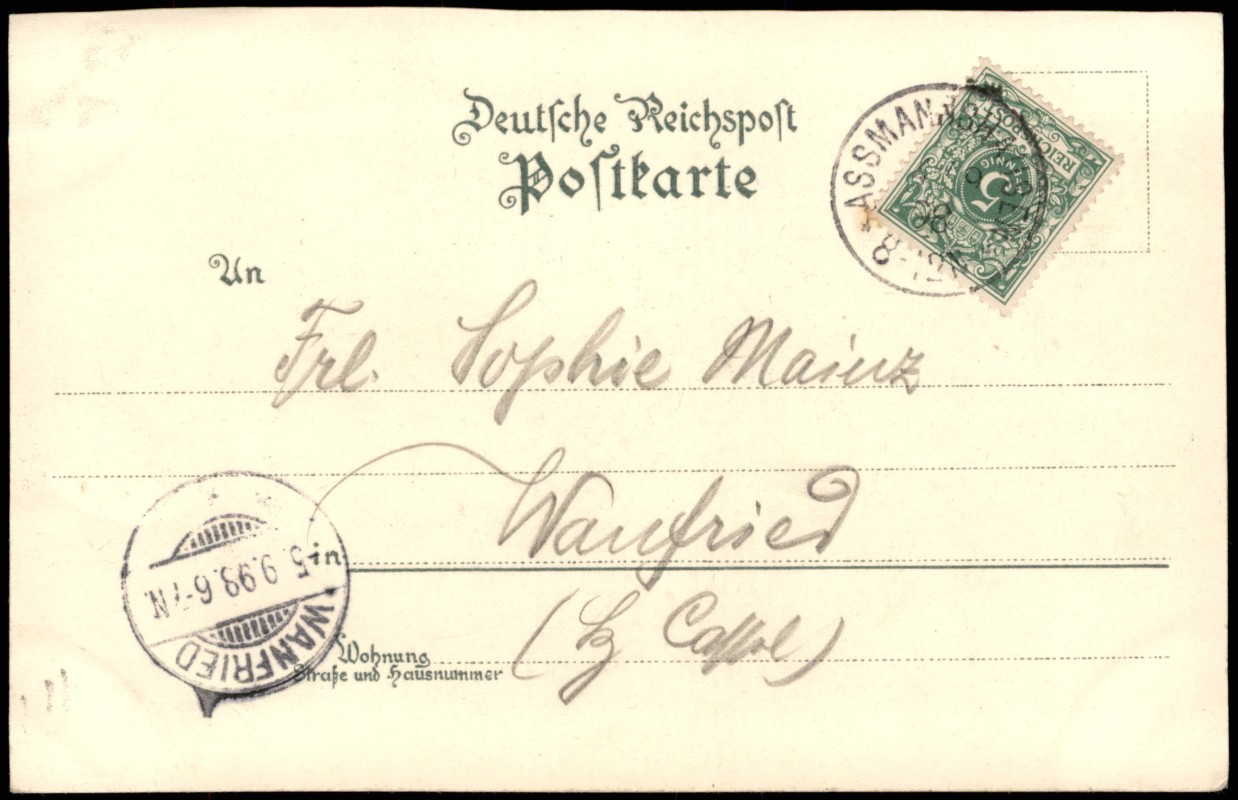 Deutsche Reichspost
Postkarte
ASSMANNSHAUSEN
8-12V
REICHSPOST
5
PFENNIG
An
Frl. Sophie Mainz
in Wanfried
(Bz Cassel)
Wohnung
Straße und Hausnummer
WANFRIED
5.9.98.6-7N.